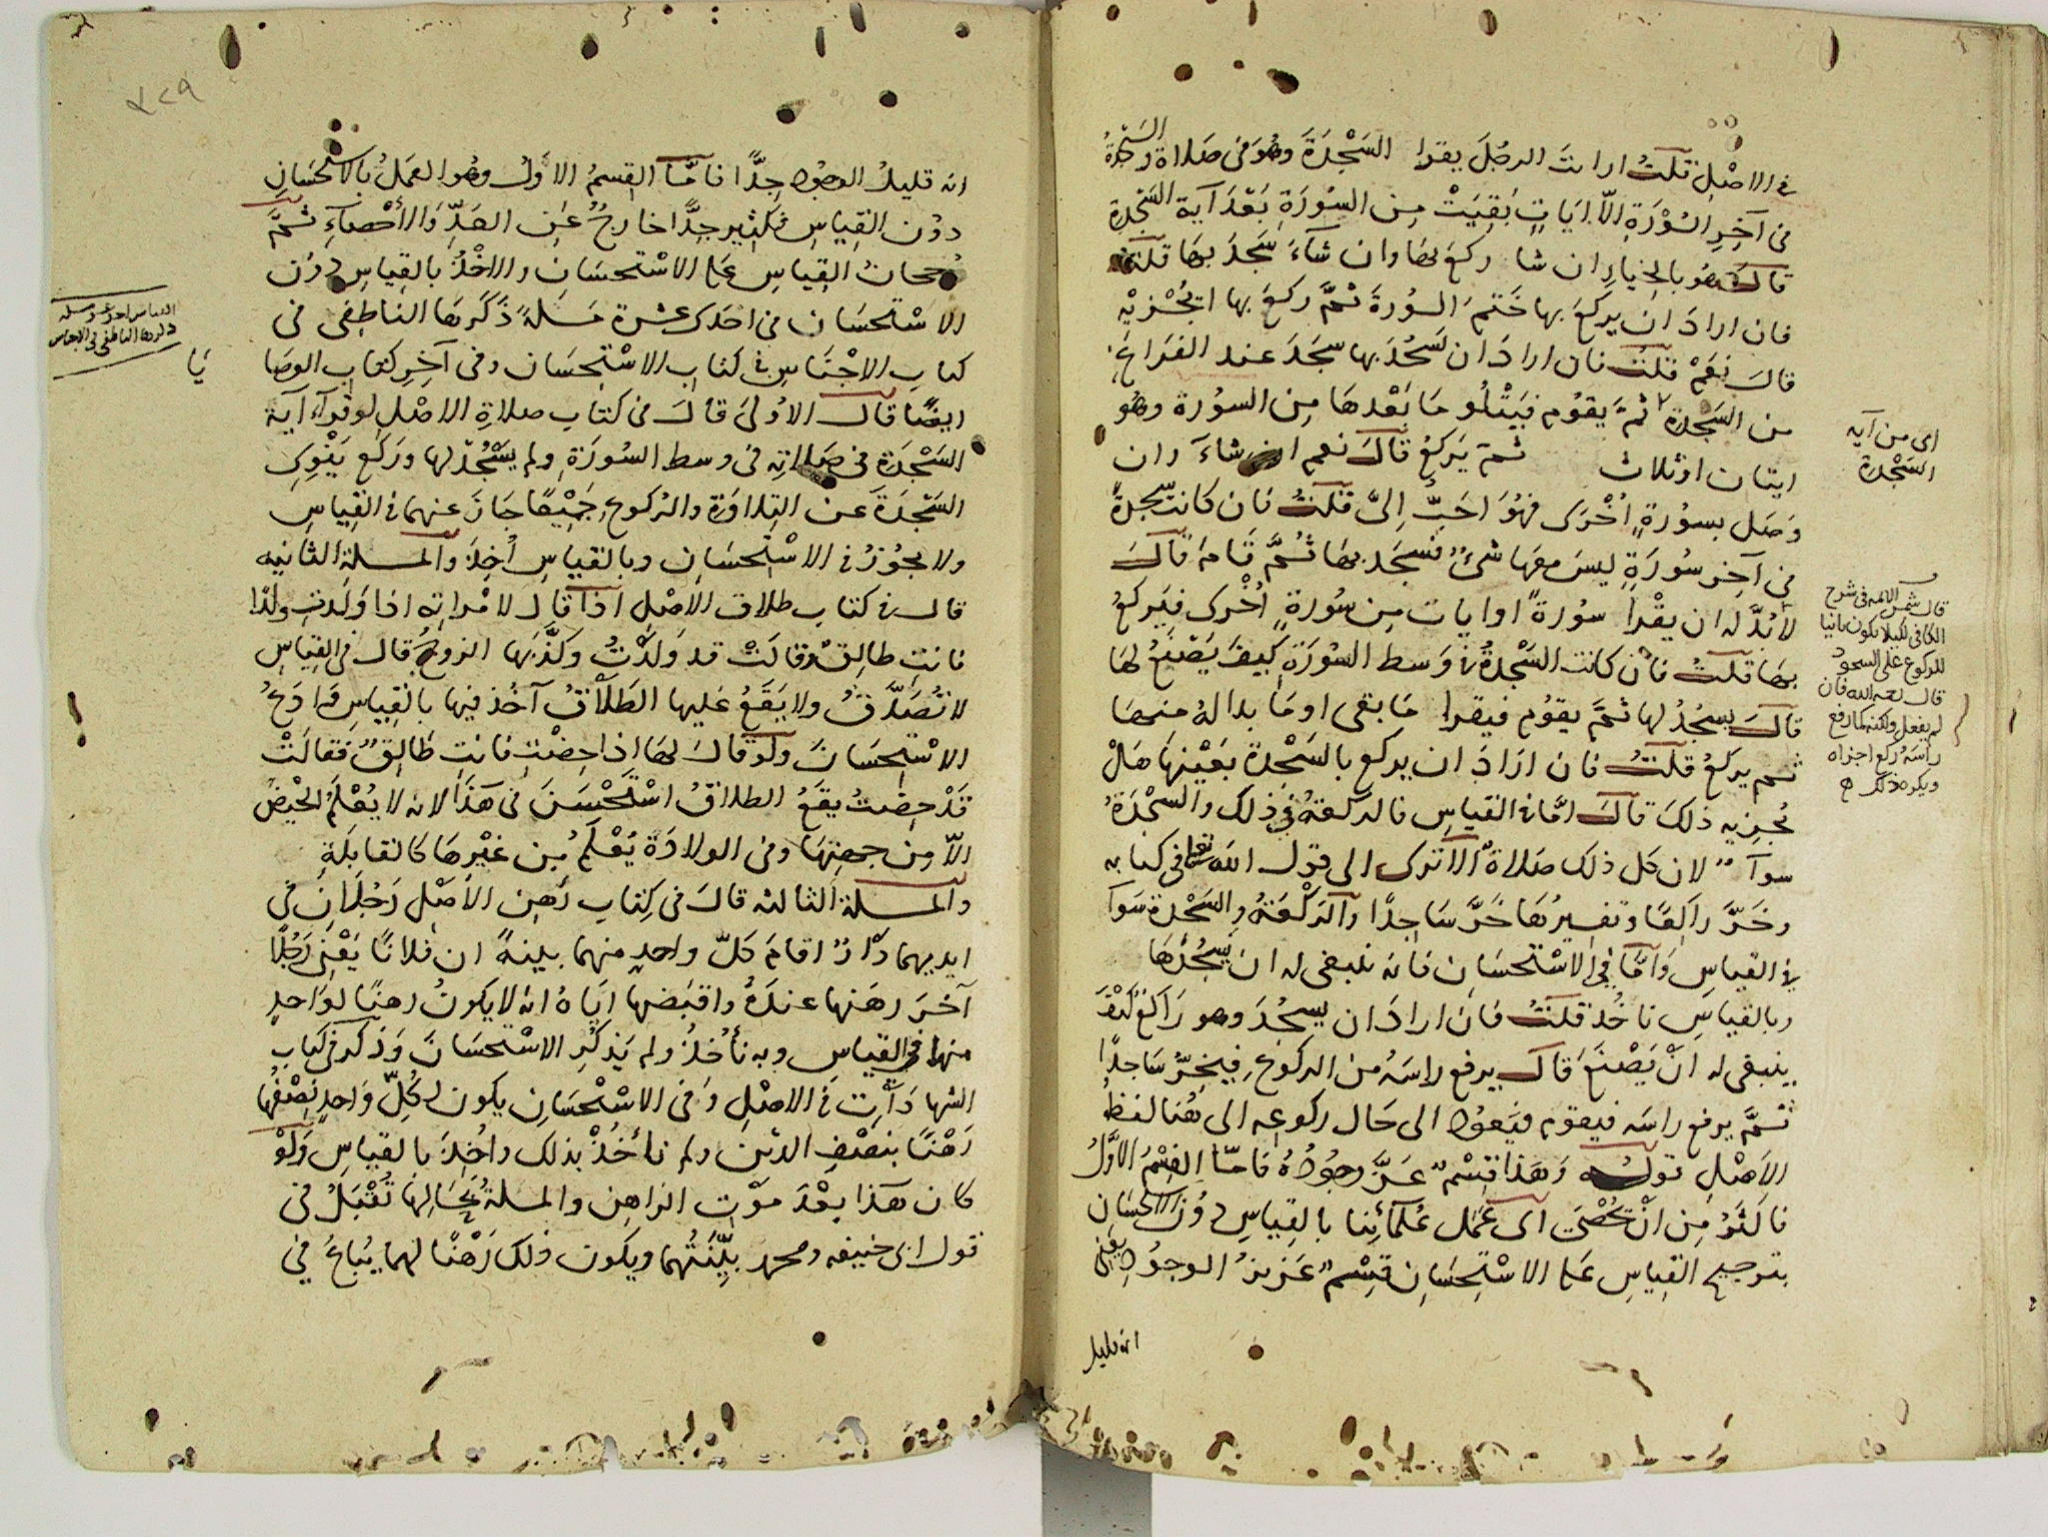 في الاصْلِ قلتُ ارايتَ الرجُلَ يقرا السَجْدَةَ وهُوَ في صَلاة والسَجْدَةُ
في آخِرِ السُوْرَةِ الاّ ايَاتٍ بَقِيَتْ مِن السُورَةِ بَعْدَ آية السَجْدة
قالَ هُوَ بالخِيارِ ان شا ركعَ بها وان شآءَ سَجدَ بها قلتُ
فان ارادَ ان يركَعَ بها خَتمَ السُورةَ ثمَّ ركعَ بها ايُجْزيْهِ
قالَ نعَمْ قلتُ فان ارادَ ان يَسجُدَ بها سجَدَ عند الفرَاغ
من السَجدة ثمّ يقوُم فيَتْلُو مَا بَعْدهَا مِن السورة وهُو
ايتان اوثلاث ثمّ يَركعُ قالَ نعم ان شاءَ وان
وَصَل بسورةٍ اُخْرَى فهُوَ احَبُّ اِليَّ قلتُ فان كانت سجدةً
في آخر سُورَةٍ ليسَ معَها شئٌ فسَجَد بهَا ثُمَّ قَامَ قالَ
لابُدَّ له ان يقْرأ سورةً او ايات مِن سُورةٍ اُخْرى فيَركعُ
بهَا قلتُ فان كانت السَجْدةُ في وَسط السُورَةِ كيفَ يَصْنَعُ لها
قالَ يسجُدُ لها ثمَّ يقوُم فيقرا مَا بقى او مَا بدا لهُ منها
ثم يركعُ قلتُ فان ارَادَ ان يركع بالسَجْدة بعَيْنِهَا هَلْ
تُجزيه ذلكَ قالَ امَّا في القياسِ فالركعةُ في ذلكَ والسجْدَةُ
سوآءٌ لان كل ذلك صَلاةٌ الا ترى الى قول الله تعالى في كتابه
وخَرَّ راكِعًا وتفسِيرُهَا خَرَّ سَاجِدًا والرَكْعَةُ والسَجْدة سَوآ
في القياسِ وَامَّا في الاسْتحسَانِ فانه ينبغي له ان يسجُدَها
وبالقياسِ ناخُذ قلتُ فان ارادَ ان يسجُدَ وهو رَاكعٌ كَيْفَ
ينبغي له انْ يَصْنَعَ قالَ يرفع راسَهُ من الركوعِ فيخِرُّ سَاجدًا
ثمَّ يرفع راسَه فيقوم فيَعوُد الى حَال ركوعِه الى هُنا لفظُ
الاصْلِ قولهُ وَهَذا قِسْمٌ عَزَّ وجُوُدُهُ فَامّا القِسْمُ الاَوَّلُ
فاكثَرُ مِن انْ تُحْصَى اَى عَمَل عُلمآئِنا بالقِياسِ دُوْن الاستحْسَانِ
بترجيح القِياسِ عَلى الاسْتِحسَانِ قِسْمٌ عَزيزُ الوجوُد يعنِي
انه قليل
اى من آية
السَجْدة
قال شمس الائمه في شرح
الكافي لكيلا يكون بانيا
للركوع على السجود
قال رحمه الله فان
لم يفعل ولكنه كما رفع
راسَهُ ركع اجزاه
ويكره ذلك
٣٢٩
انه قليلُ الوجوُدِ جِدًّا فامَّا القِسمُ الاَولُ وهُو العَملُ بالاستحْسَانِ
دوُن القِياسِ فكثير جِدًّا خارجٌ عَنِ الحَدِّ وَالأحْصآءِ ثمَّ
رجحانُ القِياس عَلى الاسْتحسَانِ والاخْذُ بالقِياسِ دوُن
الاسْتحسَان في احَدى عشرة مَسَلةً ذكرَهَا الناطِفى في
كتابِ الاجْنَاسِ في كتابِ الاسْتِحسَان وفي آخِر كتابِ الوصَا
يَا
ايضًا قالَ الاُولى قالَ في كتابِ صلاةِ الاصْلِ لوقرآء آية
السَجْدَة في صَلاتِه في وسط السُورَةِ ولم يسْجُدْ لها ورَكع يَنْوِى
السَجْدَةَ عن التِلاوَة والركوعِ جَمِيْعًا جَازَ عنهما في القِياسِ
ولا يجوُزُ في الاسْتِحسَانِ وبالقياسِ أخِذَ والمسلة الثانيه
قال في كتاب طلاق الاصْلِ اذا قال لامْراتِه اذا وَلَدتِ ولدًا
فانتِ طالِقٌ وقالَتْ قد وَلدْتُ وكَذَّبَها الزوجُ قال في القِياسِ
لا تُصَدَّقُ ولا يَقعُ عَليها الطَلَاقُ آخُذ فيها بالقِياسِ وَادَعُ
الاسْتِحسَانَ ولَو قالَ لهَا اذا حِضْتِ فانتِ طَالِقٌ فَقالَتْ
قَدْ حِضْتُ يقعُ الطلاقُ اسْتَحْسَنَ في هَذَا لانه لا يُعْلَمُ الحَيْضُ
الاّ مِن جهتِهَا وفي الولادَة يُعْلَمُ مِن غَيْرِهَا كالقابِلَةِ
والمسلة الثالثه قالَ في كِتابِ رَهِن الاَصْلِ رَجُلانِ في
ايديهما دَارٌ اقامَ كلّ واحدٍ منهما بينةً ان فلانًا يَعْني رَجُلًا
آخرَ رهَنها عندَهُ واقبَضها ايَاهُ انهُ لا يكونُ رهنًا لوَاحدٍ
منهما في القياسِ وبه نأخُذُ ولم يَذكُرِ الاسْتحسَانَ وَذكرَ في كتابِ
الشهادَاتِ في الاصْلِ وَفي الاسْتْحسَانِ يكون لِكُلِّ وَاحدٍ نِصْفُها
رَهْنًا بنِصْفِ الدَينِ ولم نأخُذْ بذلك واُخِذَ بالقياسِ وَلَوْ
كان هَذا بعْدَ مَوْتِ الرَاهِن والمسلةُ بحَالِها تُقْبَلُ في
قول ابي حنيفه ومحمد بيِّنَتُهما ويكون ذلك رَهْنًا لهما يُباعُ في
القياس احد عشر مسلة
ذكرها الناطفي في الاجناس